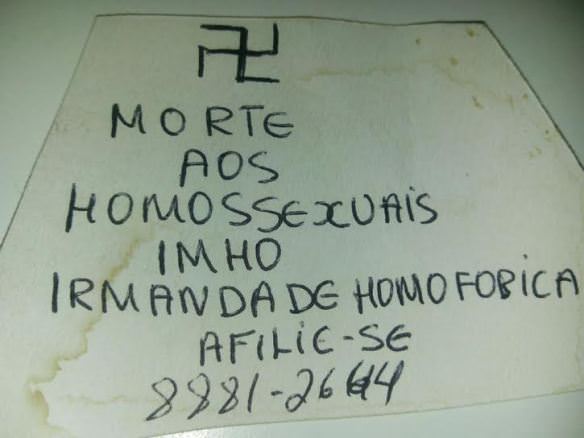 MORTE
AOS
HOMOSSEXUAIS
IMHO
IRMANDADE HOMOFOBICA
AFILIE-SE